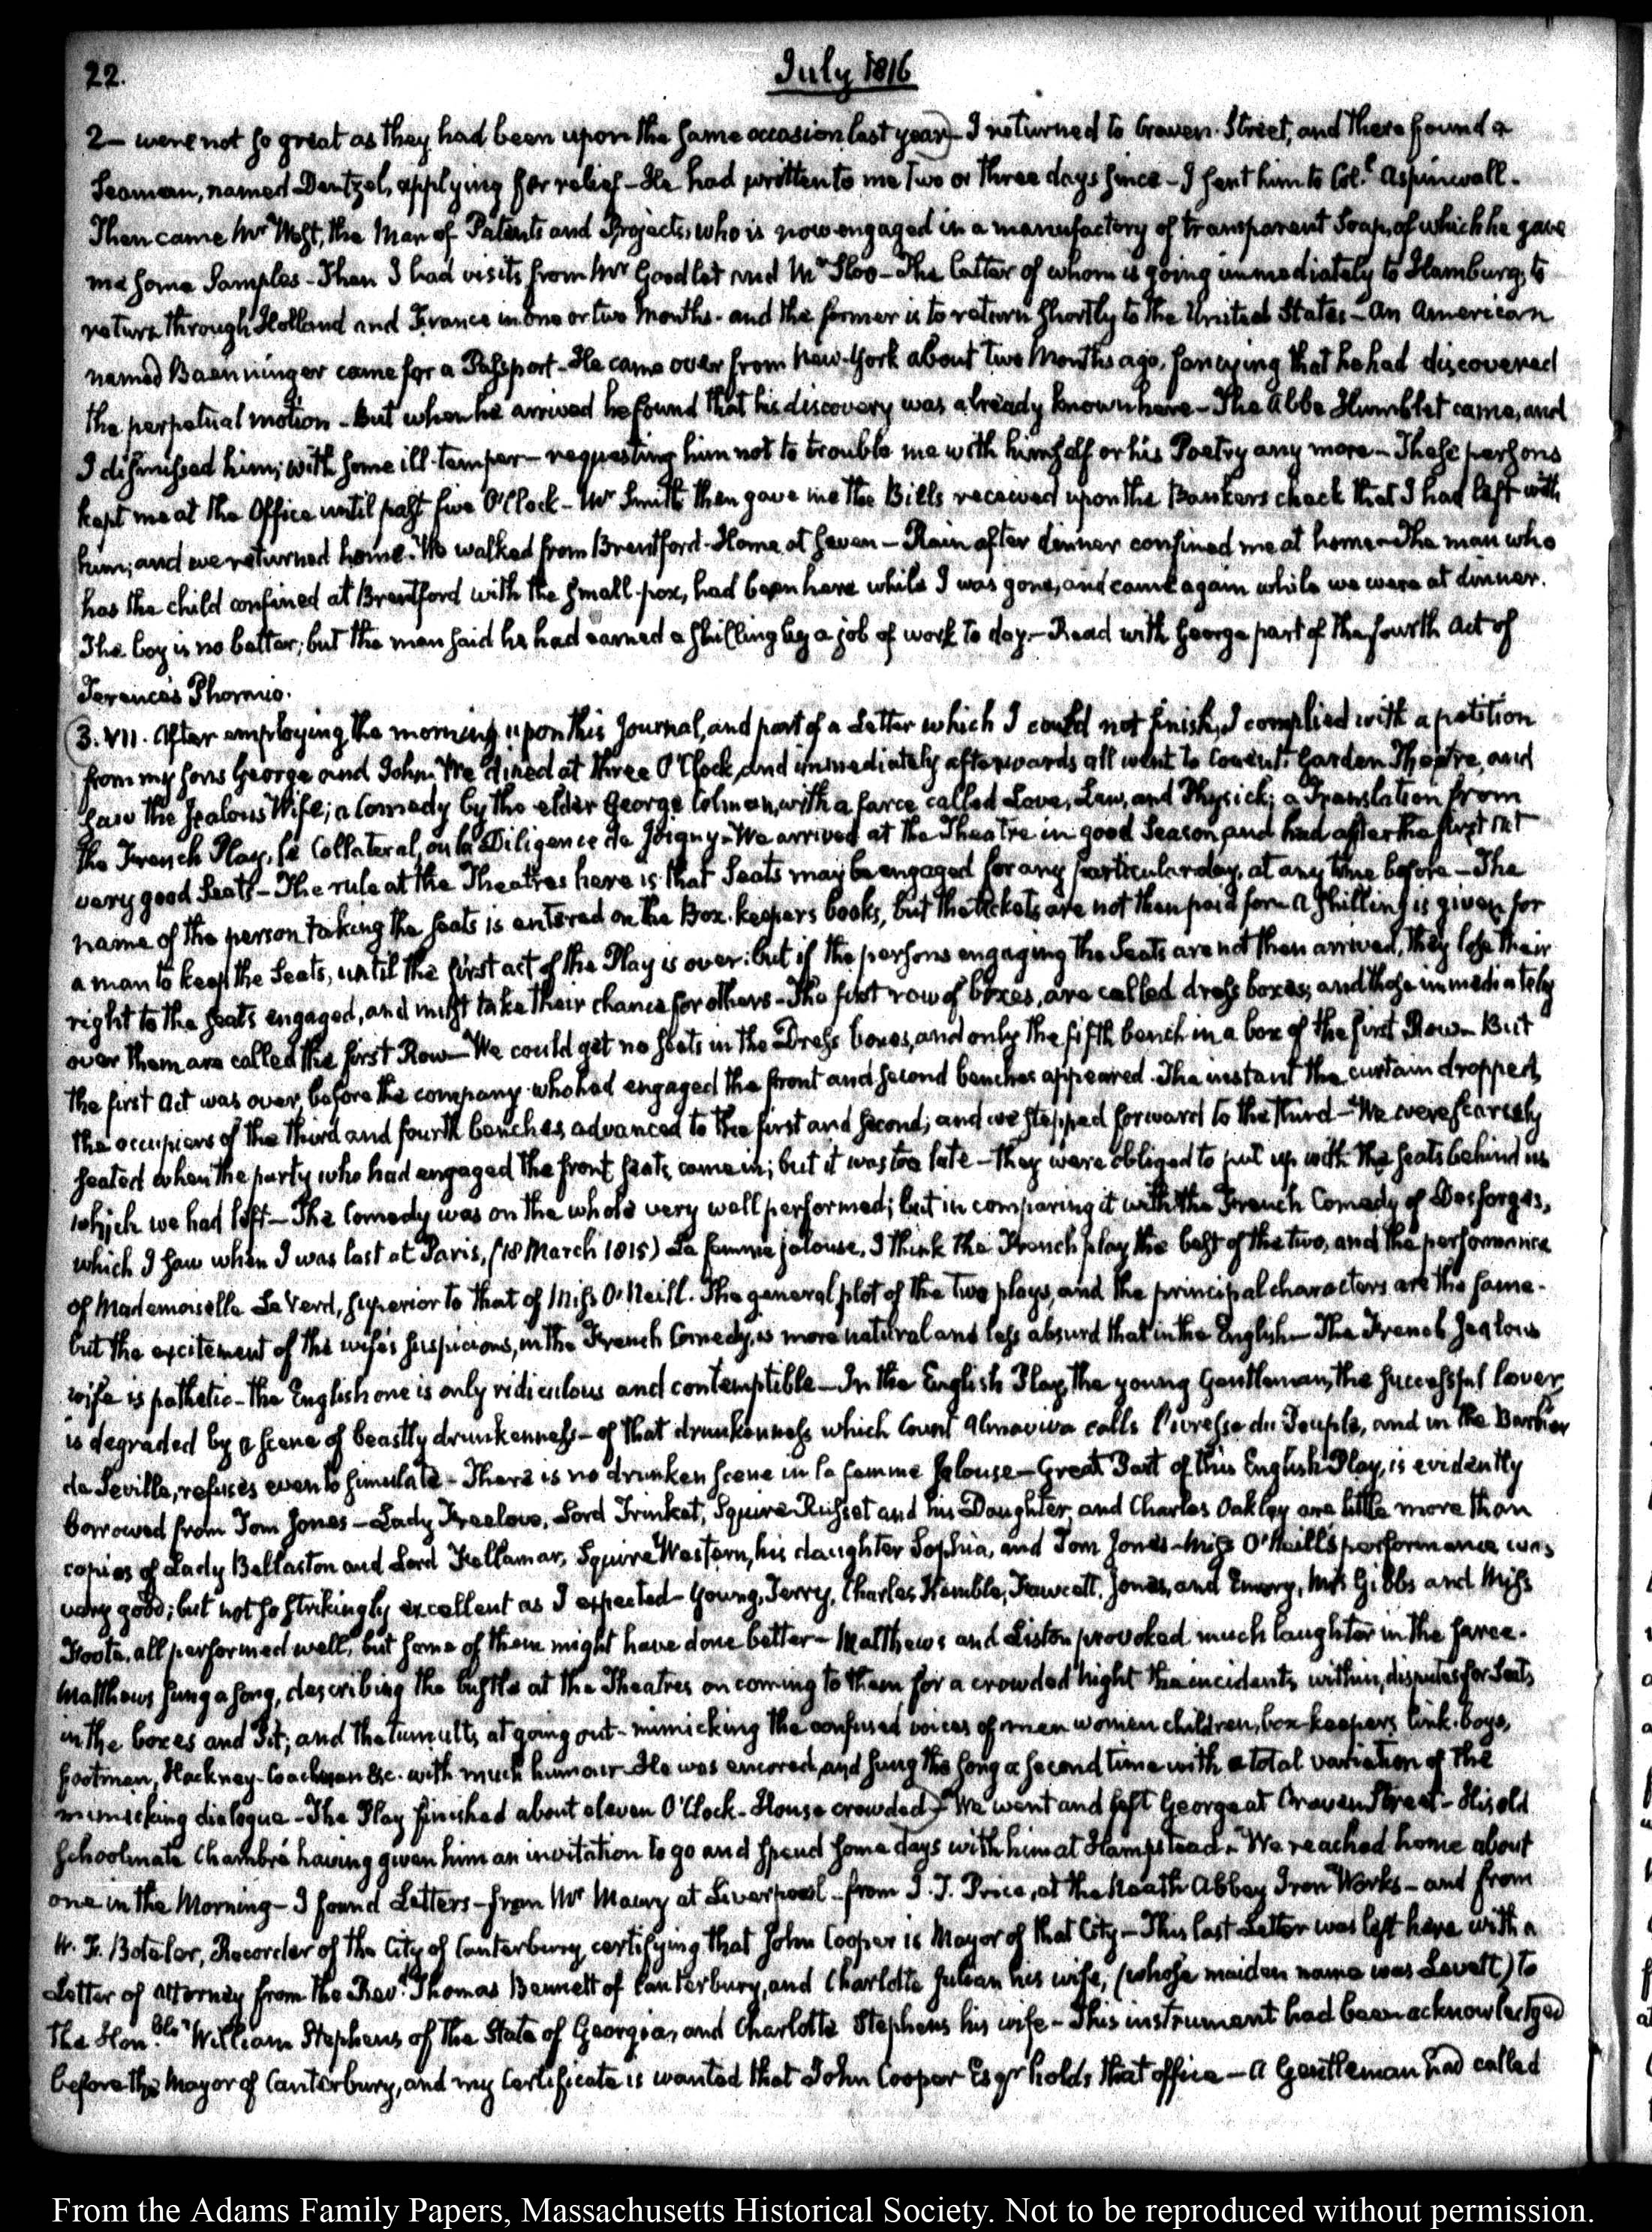 22.
July 1816
2— were not so great as they had been upon the same occasion last year)— I returned to Craven-Street, and there found a
Seaman, named Dentzel, applying for relief— He had written to me two or three days since— I sent him to Col.l Aspinwall.
Then came Mr West, the Man of Patents and Projects, who is now engaged in a manufactory of transparent Soap, of which he gave
me some Samples— Then I had visits from Mr Goodlet and Mr Sloo— The latter of whom is going immediately to Hamburg; to
return through Holland and France in one or two Months— and the former is to return shortly to the United States— An American
named Baenninger came for a Passport— He came over from New-York about two Months ago, fancying that he had discovered
the perpetual motion— But when he arrived he found that his discovery was already known here— The Abbe Humblet came, and
I dismissed him; with some ill-temper— requesting him not to trouble me with himself or his Poetry any more— These persons
kept me at the Office until past five O'Clock— Mr Smith then gave me the Bills received upon the Bankers check that I had left with
him; and we returned home. We walked from Brentford— Home at seven— Rain after dinner confined me at home— The man who
has the child confined at Brentford with the small-pox, had been here while I was gone, and came again while we were at dinner.
The boy is no better; but the man said he had earned a shilling by a job of work to day.— Read with George part of the fourth Act of
Terence's Phormio.
3. VII. After employing the morning upon this Journal, and part of a Letter which I could not finish, I complied with a petition
from my Sons George and John. We dined at three O'Clock, and immediately afterwards all went to Covent-Garden Theatre, and
saw the Jealous Wife; a Comedy by the elder George Colman, with a farce called Love, Law, and Physick; a Translation from
the French Play, Le Collateral, ou la Diligence de Joigny— We arrived at the Theatre in good Season, and had after the first Act
very good Seats— The rule at the Theatres here is that Seats may be engaged for any particular day, at any time before— The
name of the person taking the seats is entered on the Box-keepers books, but the tickets are not then paid for— A shilling is given for
a man to keep the Seats, until the first act of the Play is over: but if the persons engaging the Seats are not then arrived, they lose their
right to the seats engaged, and must take their chance for others— The first row of boxes, are called dress boxes; and those immediately
over them are called the first Row— We could get no seats in the Dress boxes, and only the fifth bench in a box of the first Row— But
the first Act was over, before the company who had engaged the front and second benches appeared. The instant the curtain dropped,
the occupiers of the third and fourth benches advanced to the first and second; and we stepped forward to the third— We were scarcely
seated when the party who had engaged the front seats came in; but it was too late— they were obliged to put up with the seats behind us
which we had left— The Comedy was on the whole very well performed; but in comparing it with the French Comedy of Desforges,
which I saw when I was last at Paris, (18 March 1815) La femme jalouse, I think the French play the best of the two, and the performance
of Mademoiselle Le Verd, superior to that of Miss O'Neill. The general plot of the two plays, and the principal characters are the same.
but the excitement of the wife's suspicions, in the French Comedy, is more natural and less absurd that in the English— The French Jealous
wife is pathetic— the English one is only ridiculous and contemptible— In the English Play, the young Gentleman, the successful lover,
is degraded by a scene of beastly drunkenness— of that drunkenness which Count Almaviva calls l'ivresse du Peuple, and in the Barbier
de Seville, refuses even to simulate— There is no drunken scene in la femme Jalouse— Great Part of this English Play, is evidently
borrowed from Tom Jones— Lady Freelove, Lord Trinket, Squire Russet and his Daughter, and Charles Oakley are little more than
copies of Lady Bellaston and Lord Fellamar, Squire Western, his daughter Sophia, and Tom Jones— Miss O'Neill's performance was
very good; but not so strikingly excellent as I expected— Young, Terry, Charles Kemble, Fawcett, Jones, and Emery, Mrs Gibbs and Miss
Foote, all performed well, but some of them might have done better— Matthews and Liston provoked much laughter in the farce.
Matthews sung a song, describing the bustle at the Theatres on coming to them for a crowded night the incidents within, disputes for Seats
in the boxes and Pit; and the tumults at going out— mimicking the confused voices of men women children, box-keepers, link-boys,
footmen, Hackney-Coachmen &c. with much humour— He was encored, and sung the song a second time with a total variation of the
mimicking dialogue— The Play finished about eleven O'Clock— House crowded)— We went and left George at Craven Street— His old
Schoolmate Chambré having given him an invitation to go and spend some days with him at Hampstead— We reached home about
one in the Morning— I found Letters— from Mr Maury at Liverpool— from J. T. Price, at the Neath Abbey Iron Works— and from
W. F. Boteler, Recorder of the City of Canterbury, certifying that John Cooper is Mayor of that City— This last Letter was left here with a
Letter of Attorney from the Rev.d Thomas Bennett of Canterbury, and Charlotte Julian his wife, (whose maiden name was Levett) to
the Hon.ble William Stephens of the State of Georgia, and Charlotte Stephens his wife— This instrument had been acknowledged
before the Mayor of Canterbury, and my Certificate is wanted that John Cooper Esqr holds that office— A Gentleman had called
From the Adams Family Papers, Massachusetts Historical Society. Not to be reproduced without permission.